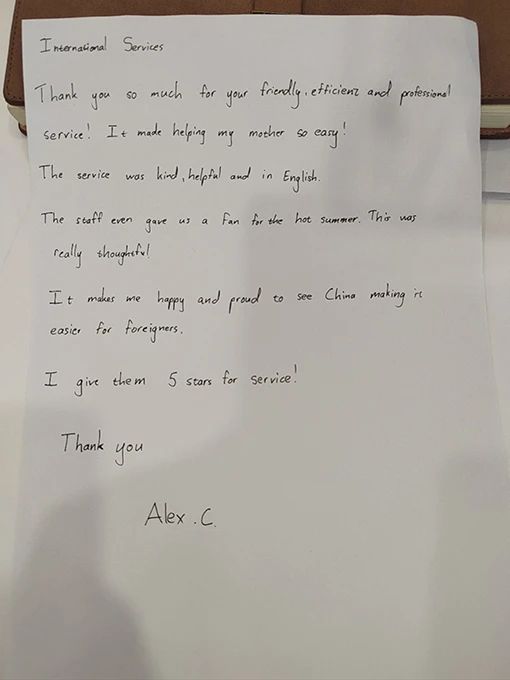 International Services
Thank you so much for your friendly, efficient and professional
service! It made helping my mother so easy!
The service was kind, helpful and in English.
The staff even gave us a fan for the hot summer. This was
really thoughtful!
It makes me happy and proud to see China making it
easier for foreigners.
I give them 5 stars for service!
Thank you
Alex. C.